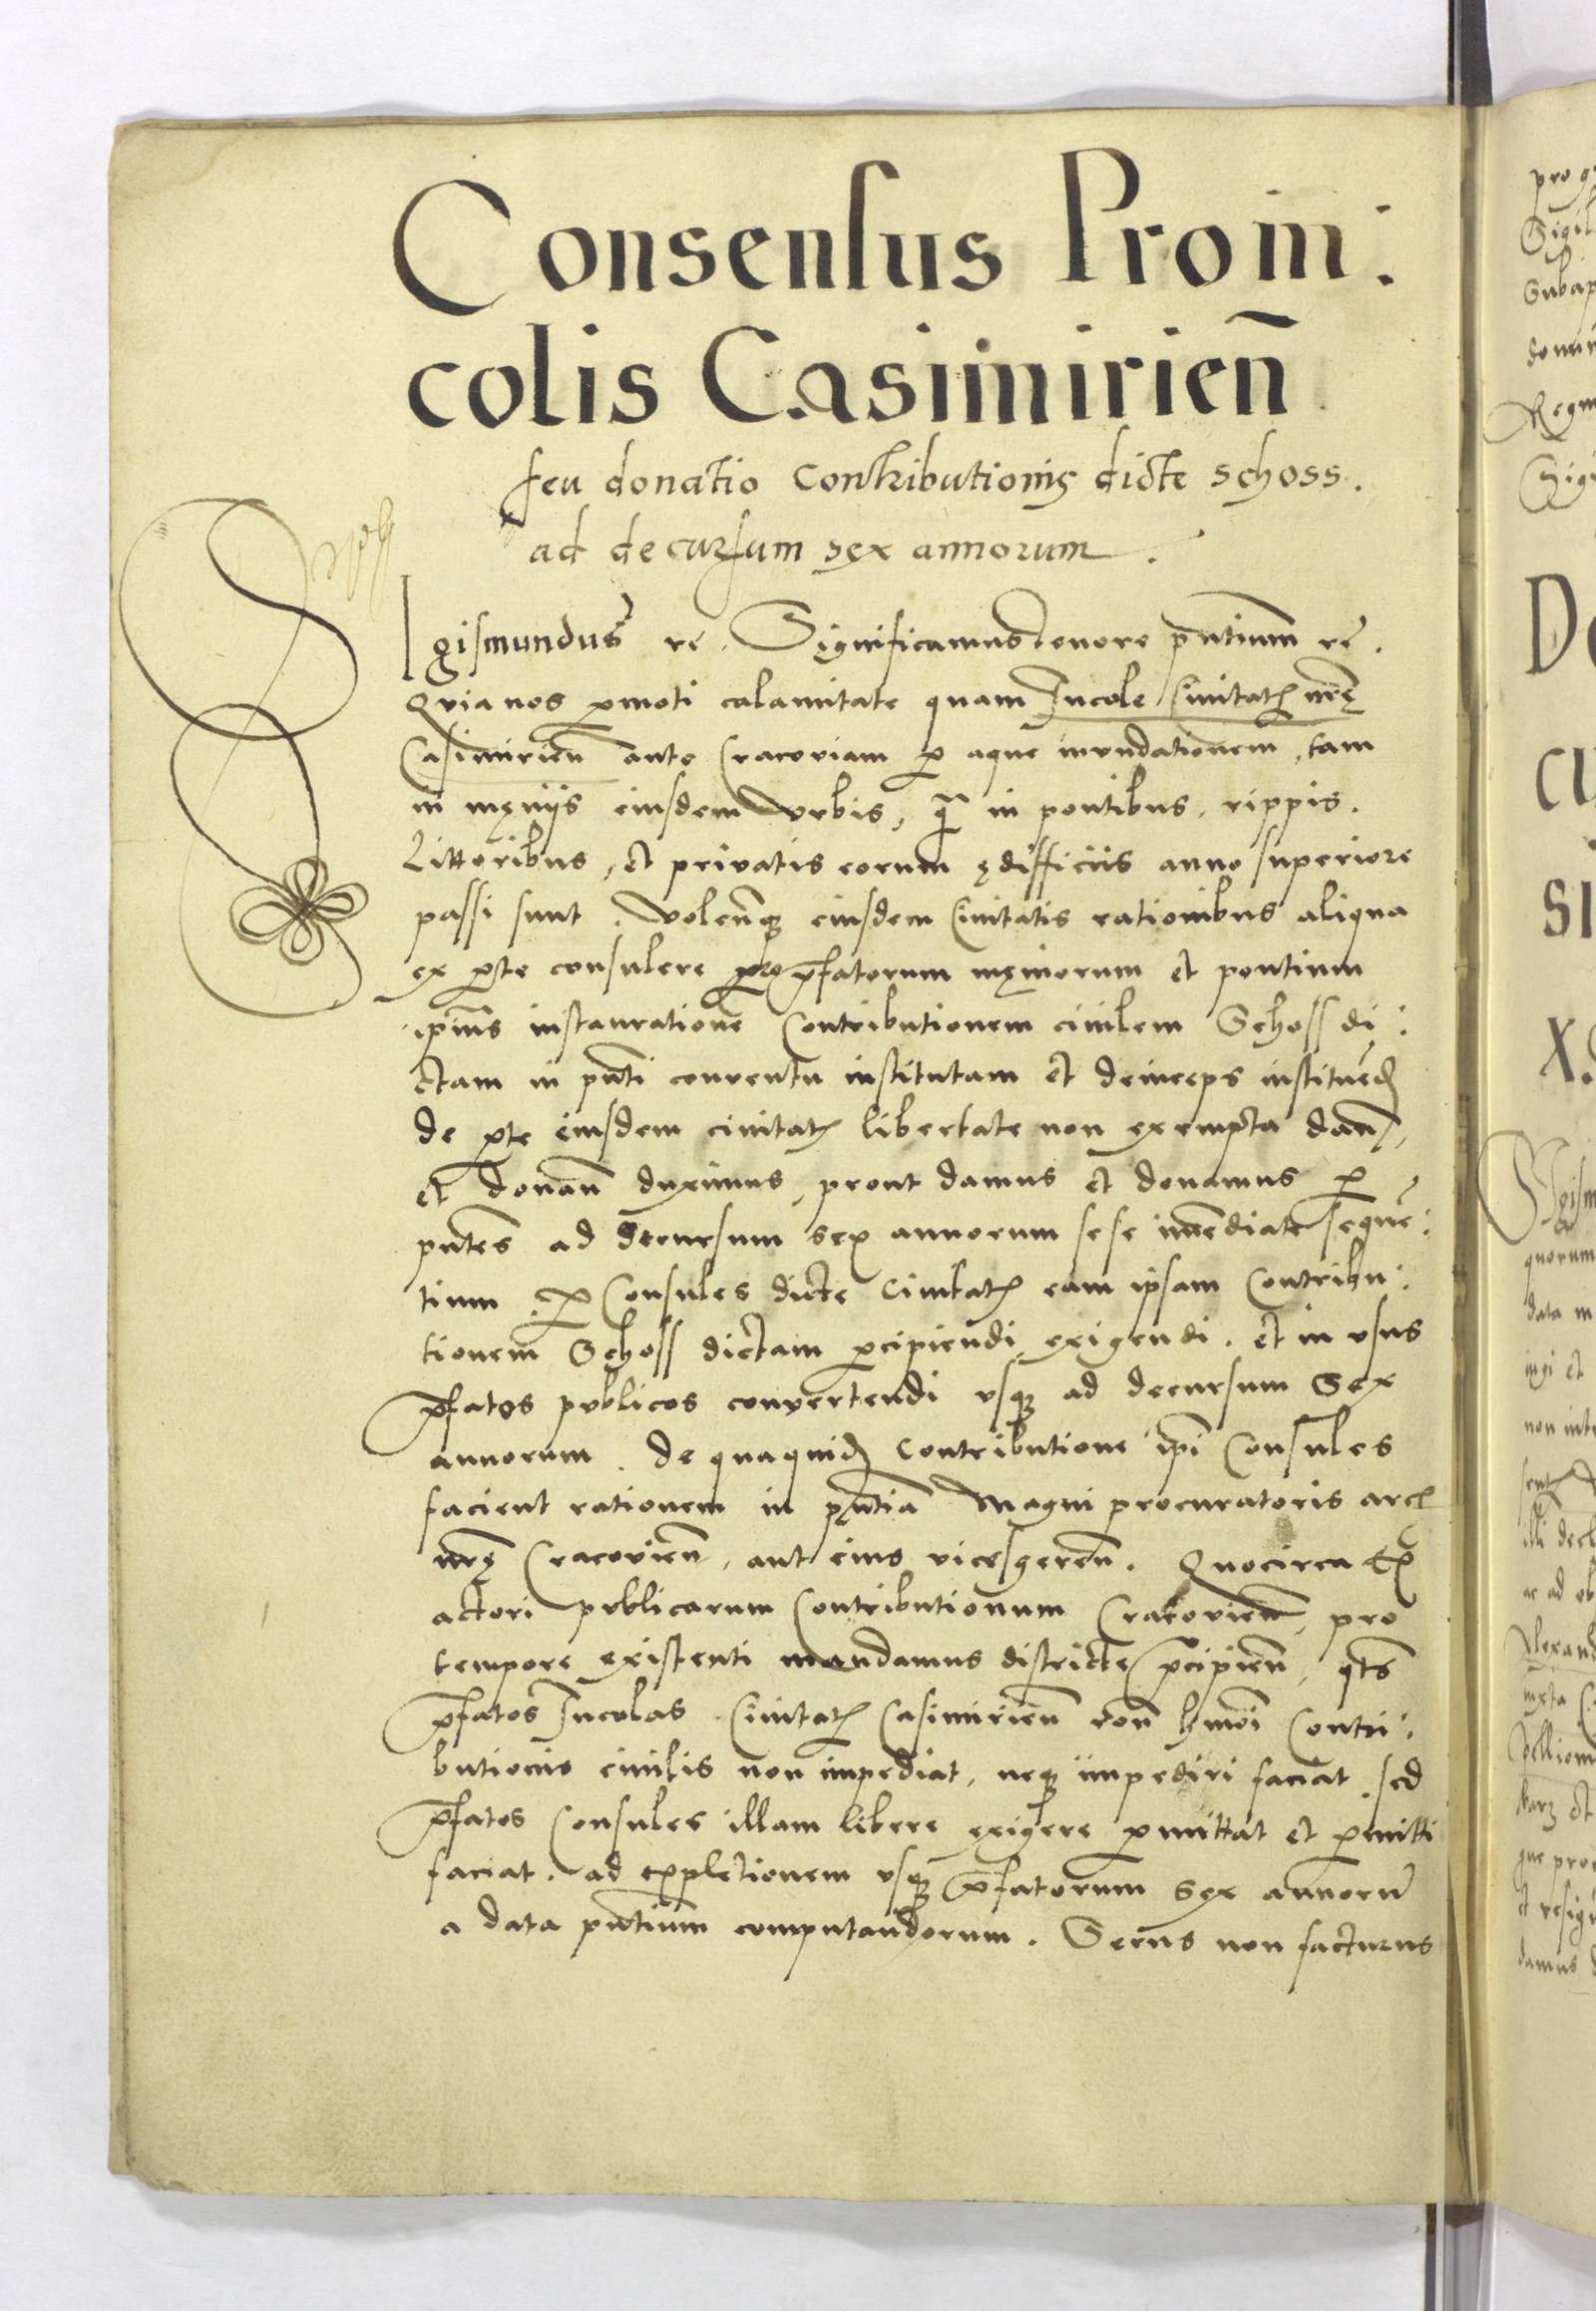 Consensus Pro in:
colis Casimirien̄
seu donatio Contributionis dicte schoss.
ad decursum sex annorum.
Sigismundus rē. Significamus tenore pn̄tium rē.
Quia nos pmoti calamitate quam Incole Civitatis nr̄ę
Casimirien̄ ante Cracoviam p aque inundationem, tam
in męniis eiusdem Vrbis, q̄ in pontibus, rippis.
Littoribus, et privatis eorum ędifficiis anno superiore
passi sunt. Volen̄tesque eiusdem Civitatis rationibus aliqua
ex pte consulere pro pfatorum męniorum et pontium
ip̄ius instauratione Contributionem civilem Schoss di:
ctam in pn̄ti conventu institutam et deinceps instituēd
de pte eiusdem civitatis libertate non exempta dan̄,
et donan̄ duximus, prout damus et donamus p
pn̄tes ad decursum sex annorum sese im̄ediate sequē:
tium. P Consules dicte Civitatis eam ipsam Contribu:
tionem Schoss dictam pcipiendi exigendi. et in usus
pfatos publicos convertendi usque ad decursum Sex
annorum. de quaquid Contributione ip̄i Consules
facient rationem in pn̄tia Magni procuratoris arcis
nr̄ę Cracovien̄, aut eius vicesgeren̄. Quocirca Ex
actori publicarum Contributionum Cracovien̄, pro
tempore existenti mandamus districte pcipien̄, qt̄s
pfatos Incolas Civitatis Casimirien̄ ron̄e hmōi Contri:
butionis civilis non impediat, neque impediri faciat, sed
pfatos Consules illam libere exigere pmittat et pmitti
faciat. ad expletionem usque pfatorum sex annorū
a data pn̄tium computandorum. Secus non facturus